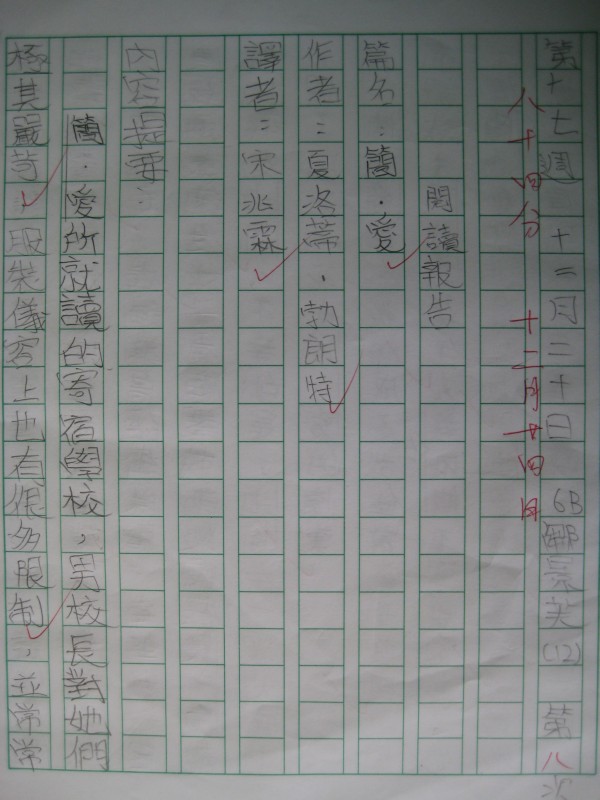 第十七週 十二月二十日 6B 鄺 芙 (12) 第八次
八十四分 十二月廿四日
閱讀報告
篇名：簡·愛
作者：夏洛蒂·勃朗特
譯者：宋兆霖
內容提要：
簡·愛所就讀的寄宿學校，男校長對她們
極其嚴苛，服裝儀容上也有很多限制，並常常